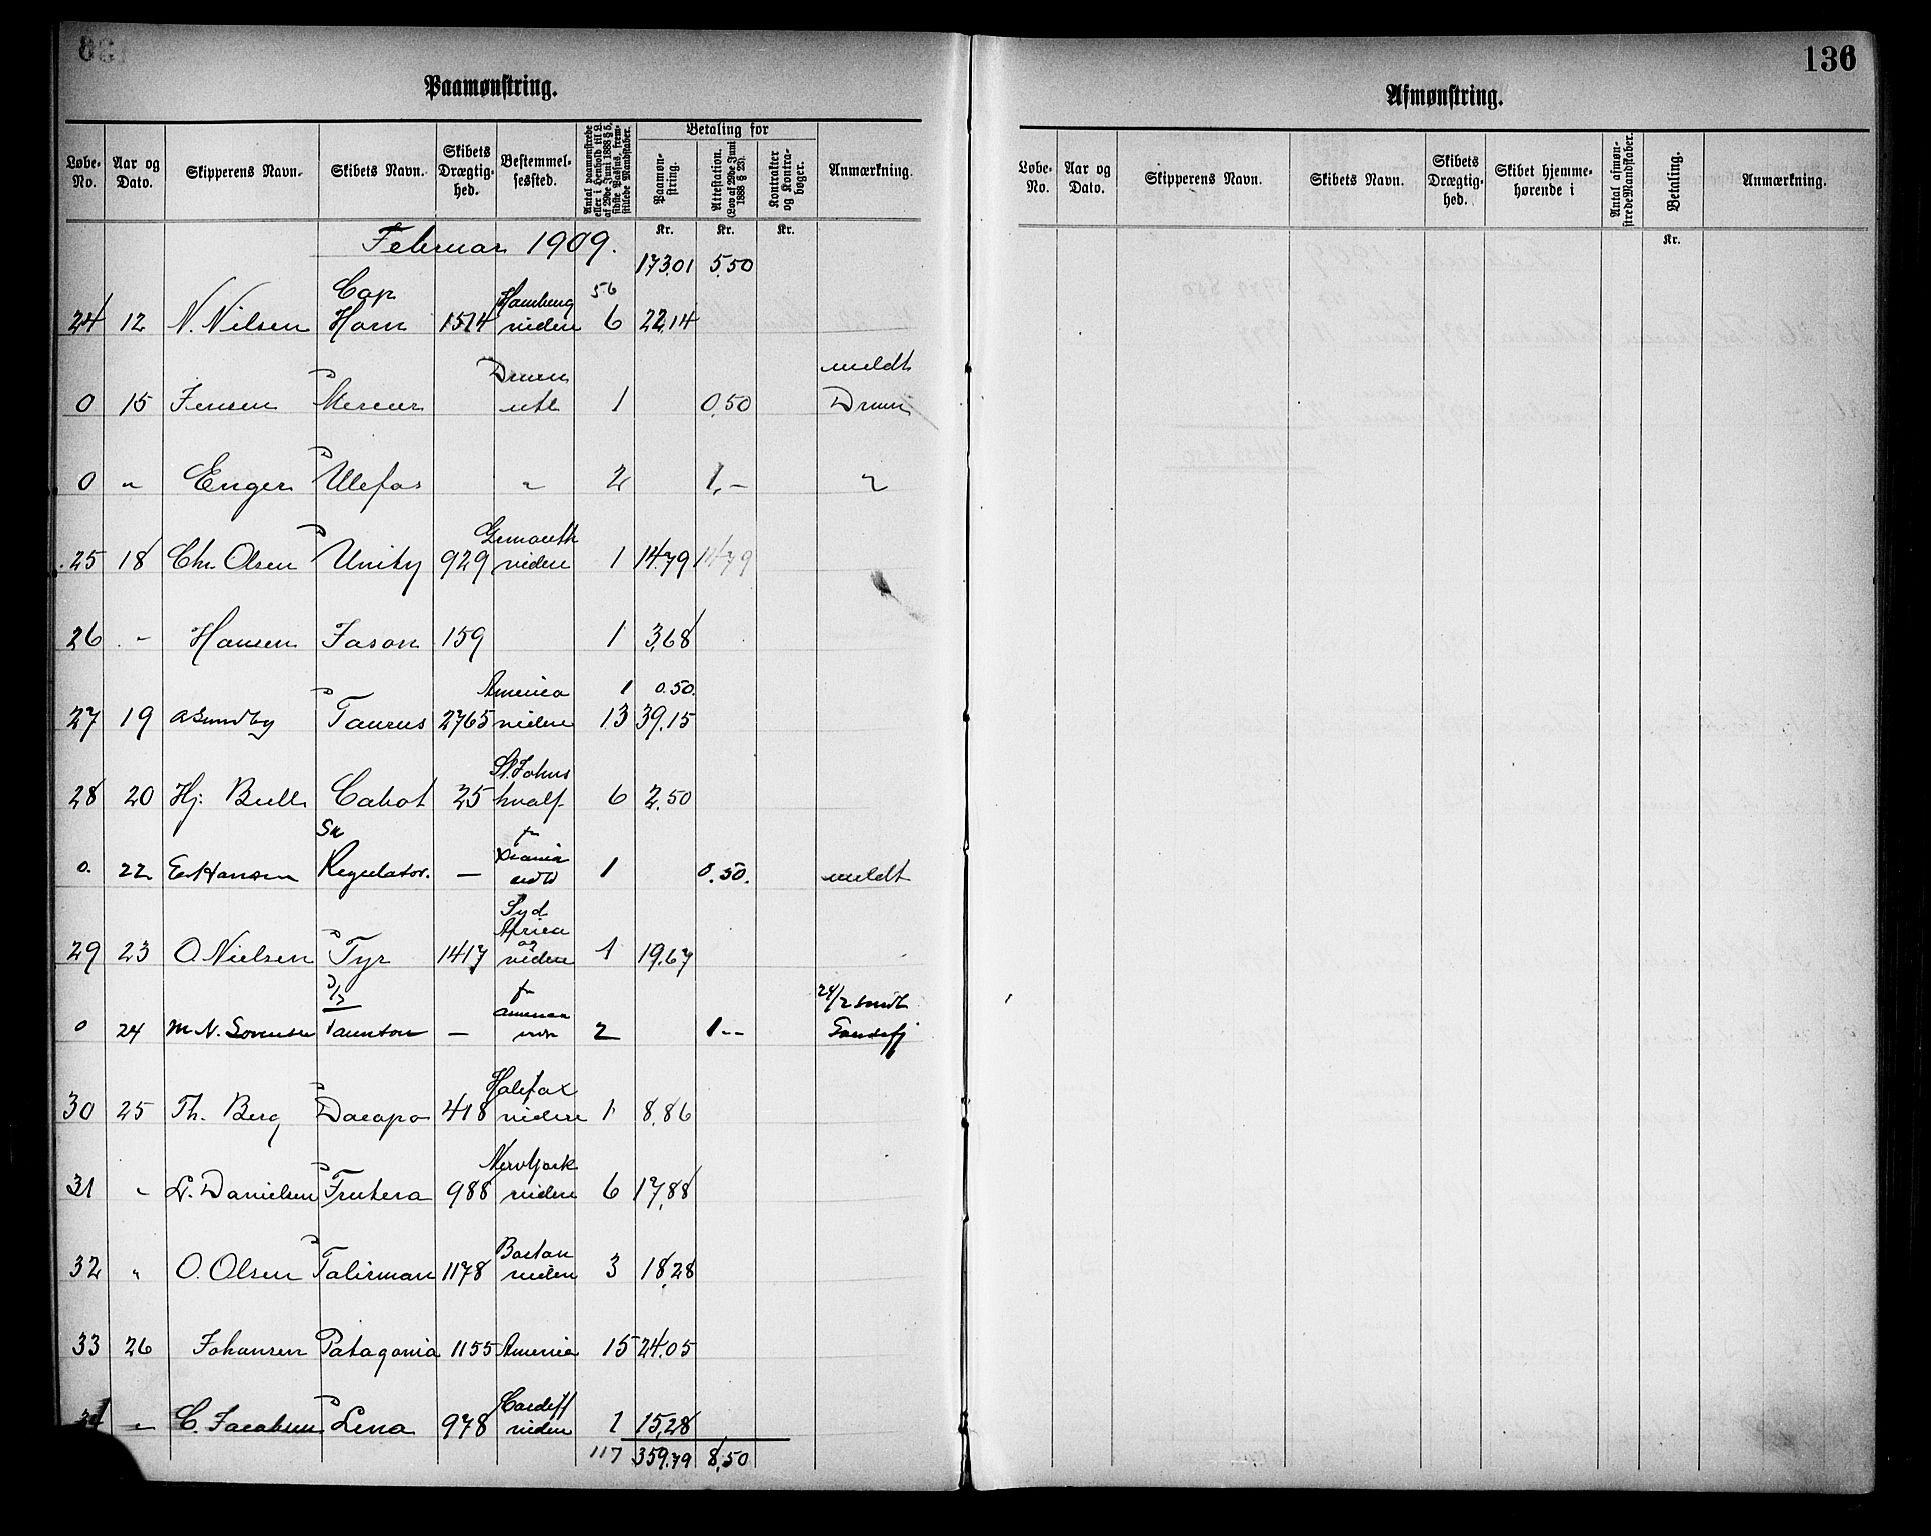 Paamønstring.
Løbe-No. Aar og Dato. Skipperens Navn. Skibets Navn. Skibets Drægtighed. Bestemmelsessted. Antal paamønstrede eller i Henhold til L. af 29de Juni 1888 § 5, sidste Passus, fremstillede Mandskaber. Betaling for Paamønstring. Attestation. (Lov af 29de Juni 1888 § 23). Kontrakter og Kontrabøger. Anmærkning.
Kr. Kr. Kr.
Februar 1909.
173.01 5.50
Cap Hamburg 56
24 12 N. Nilsen Horn 1514 videre 6 22,14
meldt
0 15 Jensen Mercur 1 0,50
0 " Enger Ulefos " 2 1,- "
25 18 Chr. Olsen Unity 929 videre 1 14.79 14.79
26 " Hansen Jason 159 1 3,68
America 1 0.50.
27 19 A Sundby Taurus 2765 videre 13 39.15
St. Johns
28 20 Hj. Bull Cabot 25 hvalf 6 2.50
Sk
0. 22 E Hansen Regulator. — 1 0.50. meldt
Syd Africa og
29 23 O Nielsen Tyr 1417 videre 1 19.67
D/S 24/2
0 24 M. N. Sørensen Taunton — 2 1-- Sandefj
Halifax
30 25 Th. Berg Dacapo 418 videre 1 8,86
New York
31 " L. Danielsen Frutera 988 videre 6 17,88
Boston
32 " O. Olsen Talisman 1178 videre 3 18,28
33 26 Johansen Patagonia 1155 America 15 24.05
Cardiff
34 " C. Jacobsen Lena 978 videre 1 15,28
117 359.79 8,50
136
Afmønstring.
Løbe-No. Aar og Dato. Skipperens Navn. Skibets Navn. Skibets Drægtighed. Skibet hjemmehørende i Antal afmønstrede Mandskaber. Betaling. Anmærkning.
Kr.